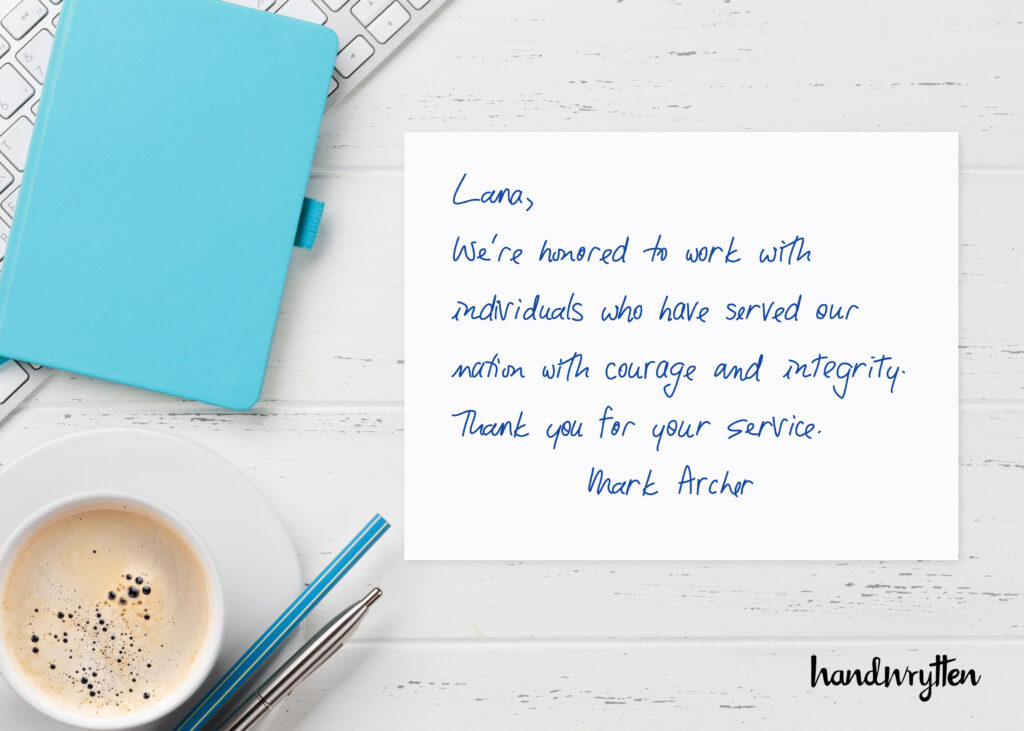 Lana,
We're honored to work with
individuals who have served our
nation with courage and integrity.
Thank you for your service.
Mark Archer
handwrytten